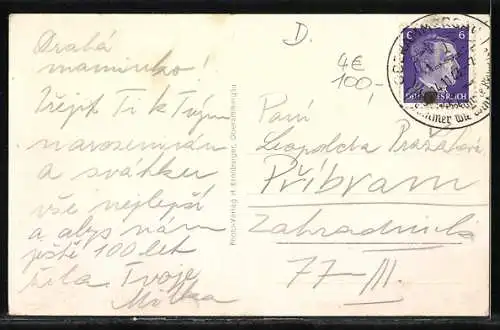 Drahá
maminko!
Přeji Ti k Tvým
narozeninám
a svátku
vše nejlepší
a abys nám
ještě 100 let
žila. Tvoje
Milka
Photo-Verlag H. Kronburger, Oberammergau
D.
4€
100,-
6 6
DEUTSCHES REICH
OBERAMMERGAU
Paní
Leopoldka Pražáková
Příbram
Zahradnická
77-III.